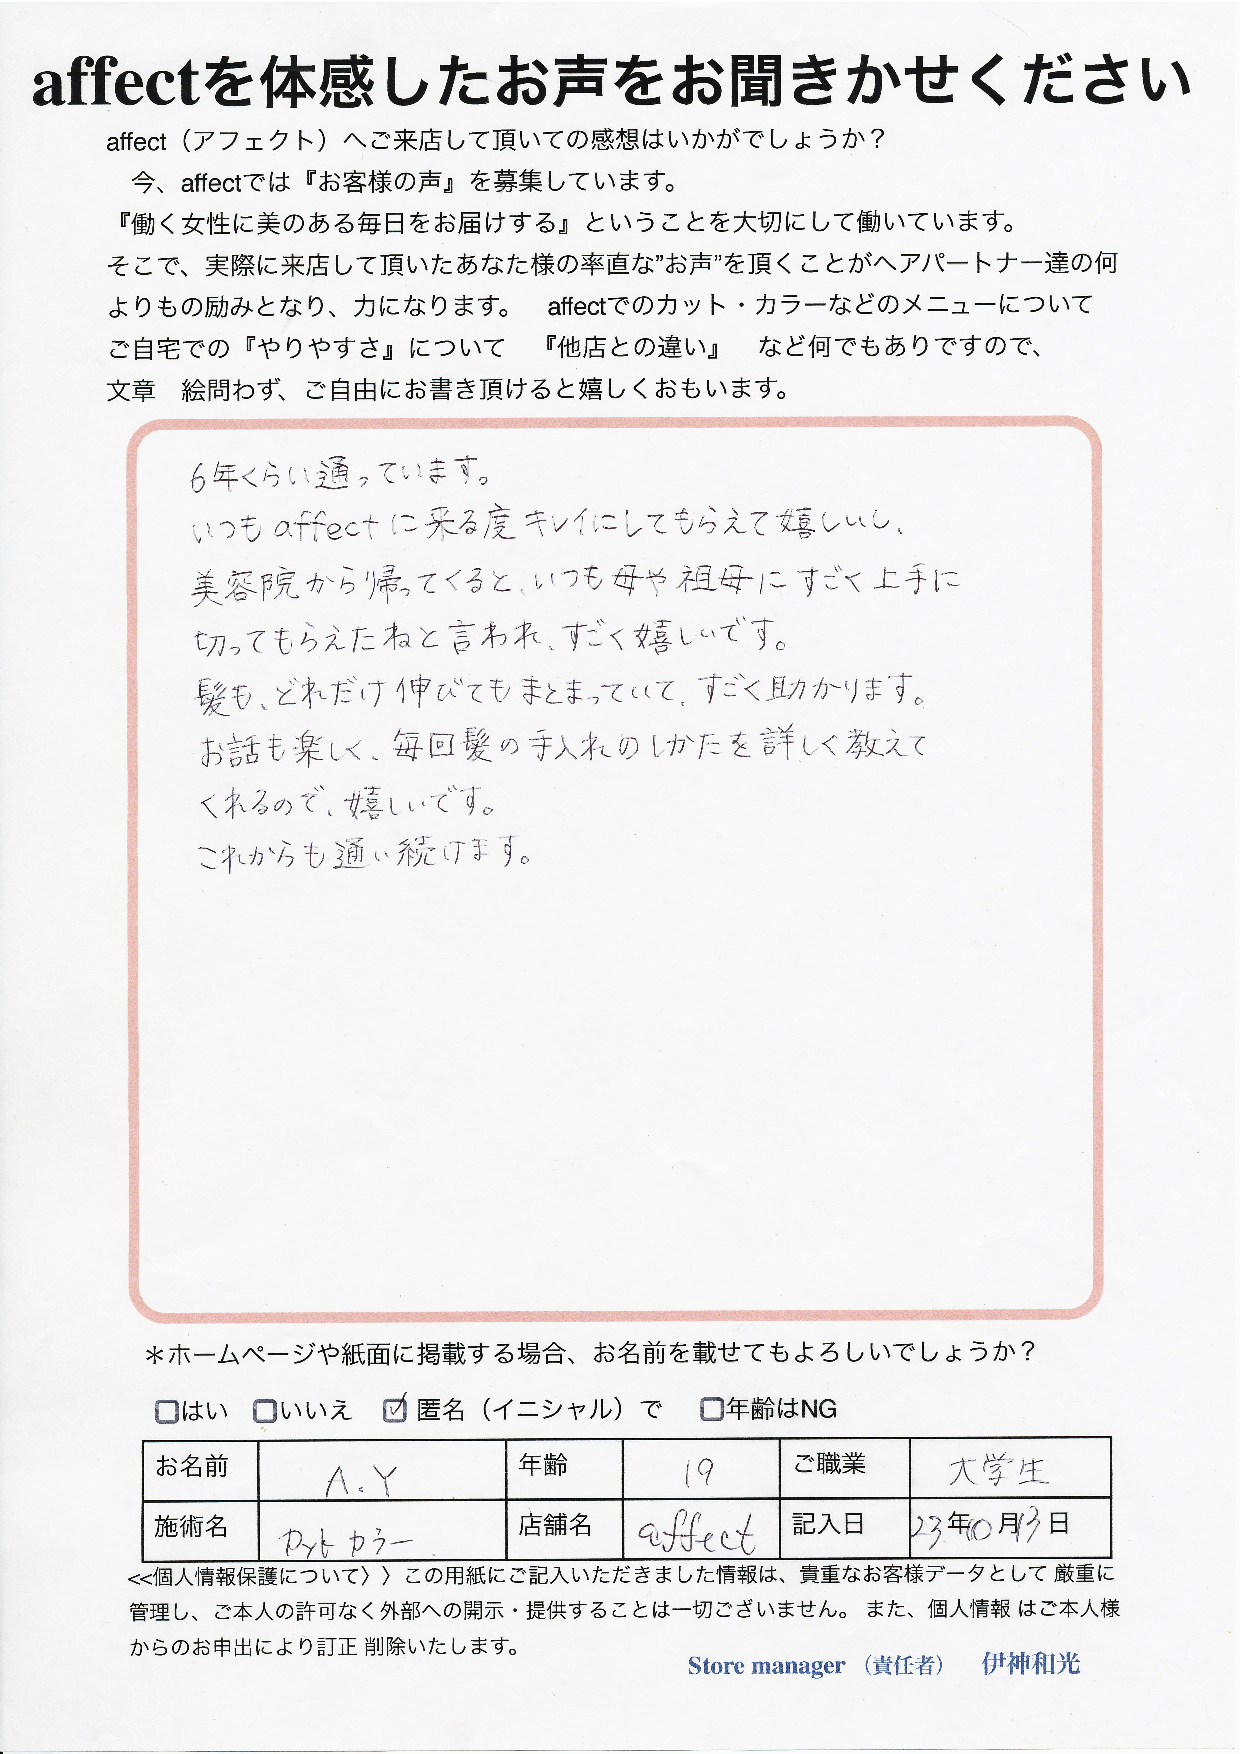 affectを体感したお声をお聞きかせください
affect（アフェクト）へご来店して頂いての感想はいかがでしょうか？
今、affectでは『お客様の声』を募集しています。
『働く女性に美のある毎日をお届けする』ということを大切にして働いています。
そこで、実際に来店して頂いたあなた様の率直な”お声”を頂くことがヘアパートナー達の何
よりもの励みとなり、力になります。　affectでのカット・カラーなどのメニューについて
ご自宅での『やりやすさ』について　『他店との違い』　など何でもありですので、
文章　絵問わず、ご自由にお書き頂けると嬉しくおもいます。
6年くらい通っています。
いつもaffectに来る度キレイにしてもらえて嬉しいし、
美容院から帰ってくると、いつも母や祖母にすごく上手に
切ってもらえたねと言われ、すごく嬉しいです。
髪も、どれだけ伸びてもまとまっていて、すごく助かります。
お話も楽しく、毎回髪の手入れのしかたを詳しく教えて
くれるので、嬉しいです。
これからも通い続けます。
＊ホームページや紙面に掲載する場合、お名前を載せてもよろしいでしょうか？
□はい　□いいえ　☑匿名（イニシャル）で　□年齢はNG
お名前　A.Y　年齢　19　ご職業　大学生
施術名　カットカラー　店舗名　affect　記入日　23年10月13日
<<個人情報保護について〉〉この用紙にご記入いただきました情報は、貴重なお客様データとして 厳重に
管理し、ご本人の許可なく外部への開示・提供することは一切ございません。 また、個人情報 はご本人様
からのお申出により訂正 削除いたします。
Store manager （責任者）　伊神和光